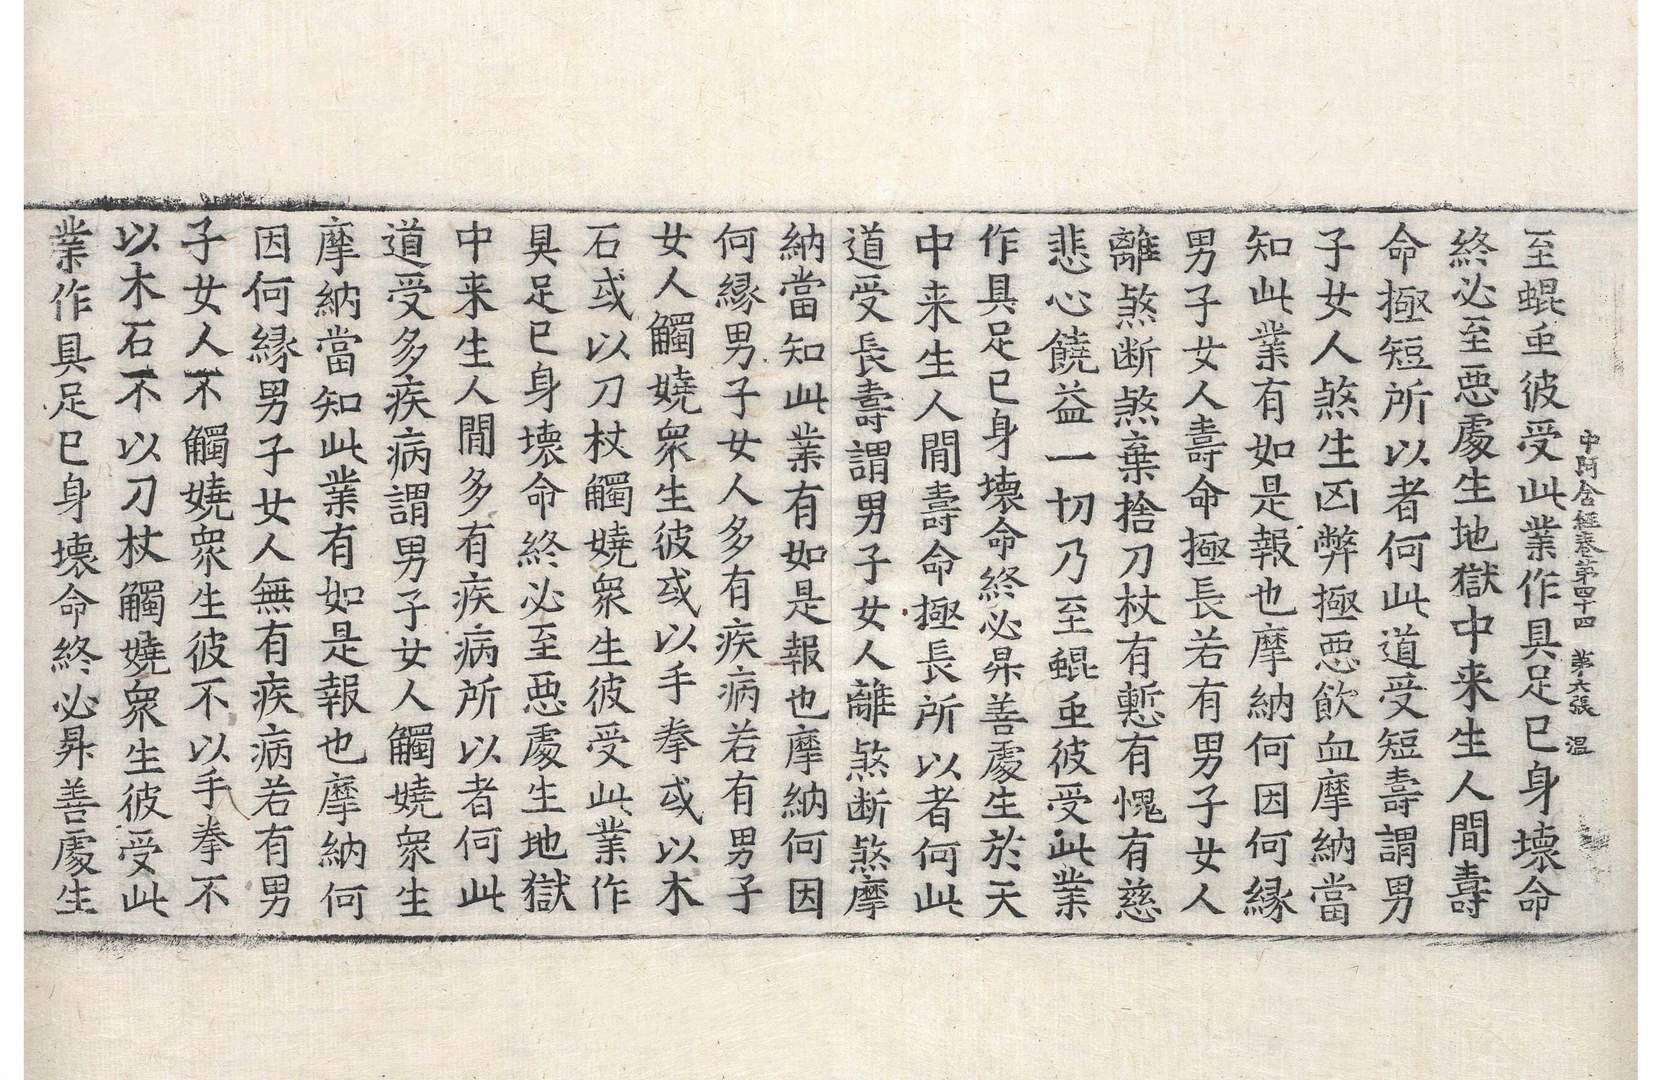 中阿含經卷第四十四　第六張　温
至蜫虫彼受此業作具足已身壞命
終必至惡處生地獄中来生人間壽
命極短所以者何此道受短壽謂男
子女人煞生凶弊極惡飲血摩納當
知此業有如是報也摩納何因何緣
男子女人壽命極長若有男子女人
離煞断煞棄捨刀杖有慙有愧有慈
悲心饒益一切乃至蜫虫彼受此業
作具足已身壞命終必昇善處生於天
中来生人間壽命極長所以者何此
道受長壽謂男子女人離煞断煞摩
納當知此業有如是報也摩納何因
何緣男子女人多有疾病若有男子
女人觸嬈衆生彼或以手拳或以木
石或以刀杖觸嬈衆生彼受此業作
具足已身壞命終必至惡處生地獄
中来生人間多有疾病所以者何此
道受多疾病謂男子女人觸嬈衆生
摩納當知此業有如是報也摩納何
因何緣男子女人無有疾病若有男
子女人不觸嬈衆生彼不以手拳不
以木石不以刀杖觸嬈衆生彼受此
業作具足已身壞命終必昇善處生